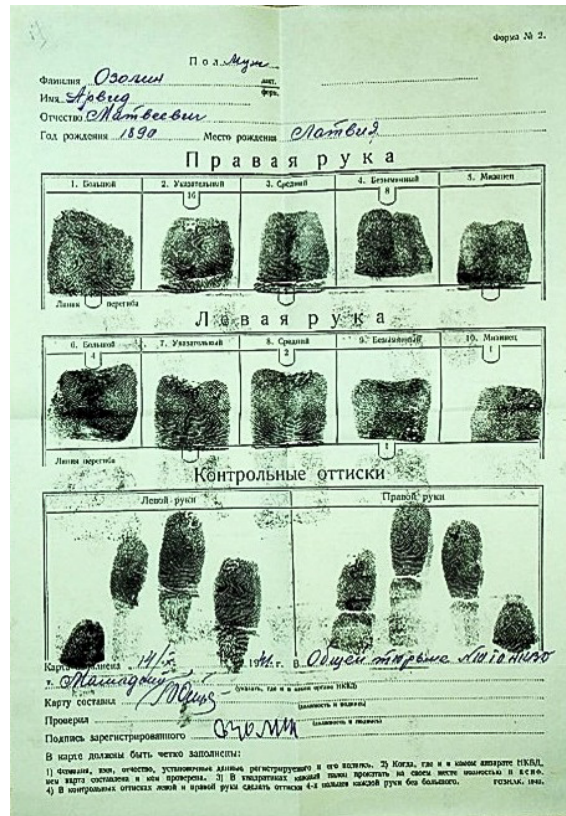 Форма № 2.
Пол Муж
Фамилия Озолин
Имя Арвид
Отчество Матвеевич
Год рождения 1890 Место рождения Латвия
Правая рука
1. Большой 2. Указательный 3. Средний 4. Безымянный 5. Мизинец
16 8
Линия перегиба
Левая рука
6. Большой 7. Указательный 8. Средний 9. Безымянный 10. Мизинец
4 2 1
Линия перегиба
Контрольные оттиски
Левой руки Правой руки
Карта заполнена 14/X 1941 г. в Общей тюрьме
г.
(указать, где и в каком органе НКВД)
Карту составил
(должность и подпись)
Проверил
(должность и подпись)
Подпись зарегистрированного Озолин
В карте должны быть четко заполнены:
1) Фамилия, имя, отчество, установочные данные регистрируемого и его подпись. 2) Когда, где и в каком аппарате НКВД,
кем карта составлена и кем проверена. 3) В квадратиках каждый палец прокатать на своем месте полностью и ясно.
4) В контрольных оттисках левой и правой руки сделать оттиски 4-х пальцев каждой руки без большого. ГОЗНАК.